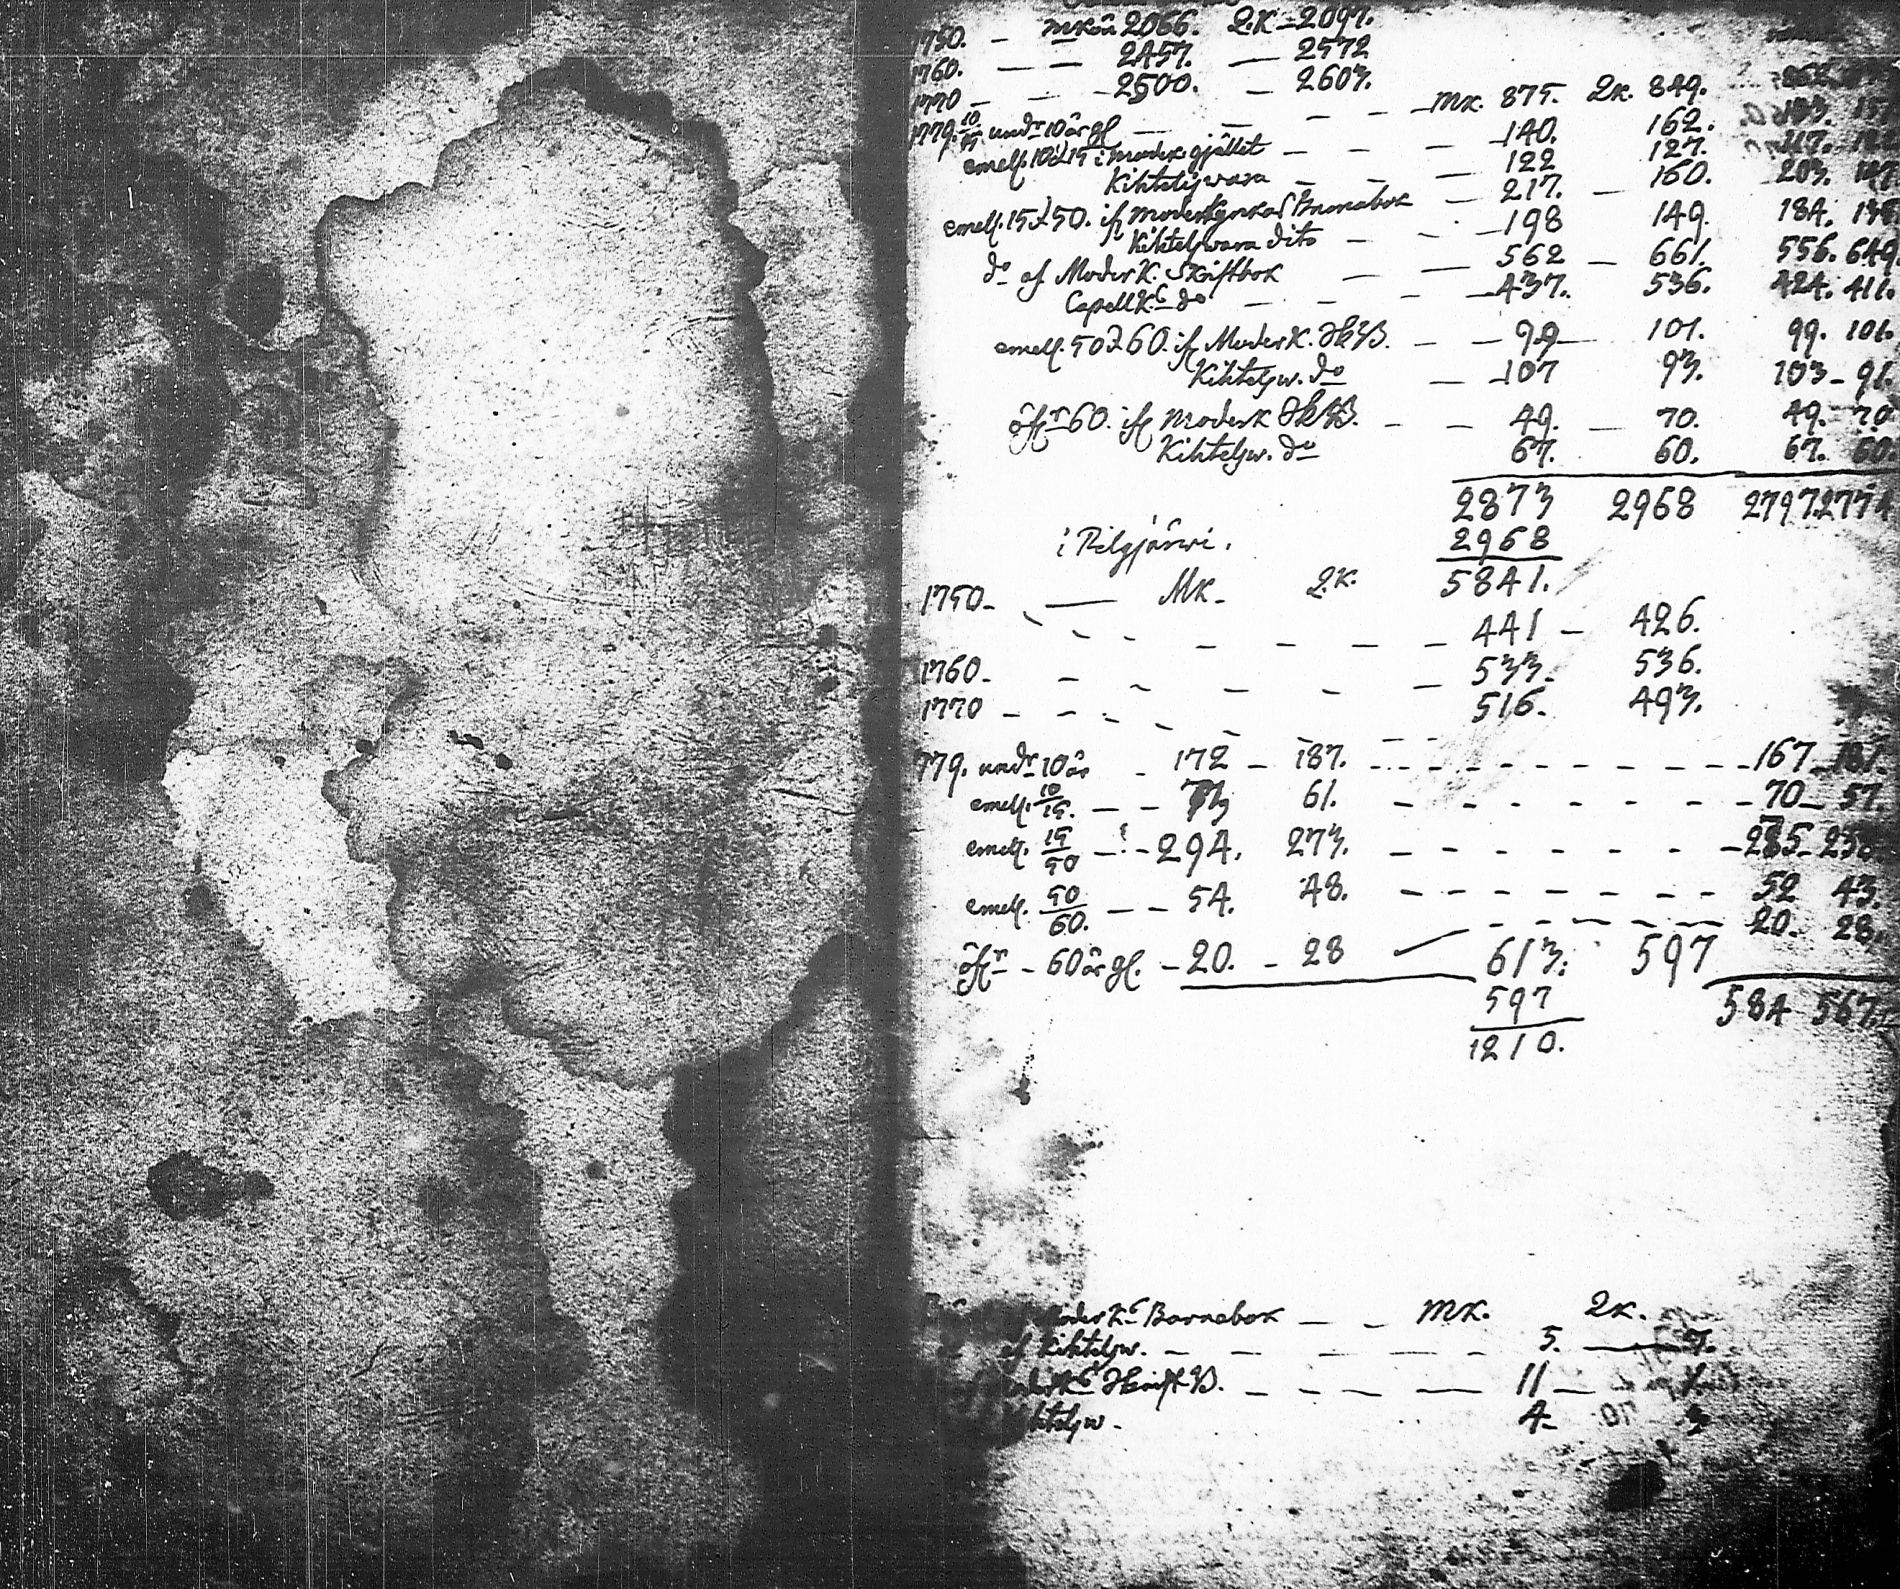 1750. — mkön 2066. Q.K – 2097.
1760. — — 2457. — 2572
1770 – — – 2500. – 2607.
1779. 10/15. undr 10 år gl. — – – – – mk. 875. Qk. 849.
emell. 10 & 15 i moder gjället – – – – 140. 162.
Kihtelijwara – – – – 122 127.
emell. 15 & 50. if moderkyrkas Barnabok — 217. – 160. 203.
Kihteljwara dito – – – 198 149. 184.
do af Moderk. Skriftbok — — 562 – 661. 556. 649.
Capellk. do – – – – 437. 536. 424. 411.
emell. 50 & 60. if Moderk. Sk.B. – – 99 – 101. 99. 106.
Kihteljw. do — – 107 93. 103 – 91.
öfr 60. if Moderk Sk.B. – – – 49. – 70. 49. 70
Kihteljw. do 67. 60. 67. 60.
2873 2968 2797. 277
i Pilgjärwi. 2968
1750 – — Mk – Q.K. 5841.
– – – – – – 441 – 426.
1760 – – – – – – 533. 536.
1770 – – – – – – 516. 493.
779. undr 10 år – 172 – 187. – – – – – – 167 – 181
emell. 10/15. – – 61. – – – – – – 70 – 57
emell. 15/50 – – 294. 273. – – – – – – 285 –
emell. 50/60. – – 54. 48. – – – – – – 52 43.
öfr – 60 år gl. – 20. – 28 – – – – – – 20. 28.
613. 597
597 584 567.
1210.
Moderk. Barnabok — – mk. Qk.
af Kihteljw. – — – – – 5. — 7.
Skrift B. – – – – — 11 —
Kihteljw. 4 – 3